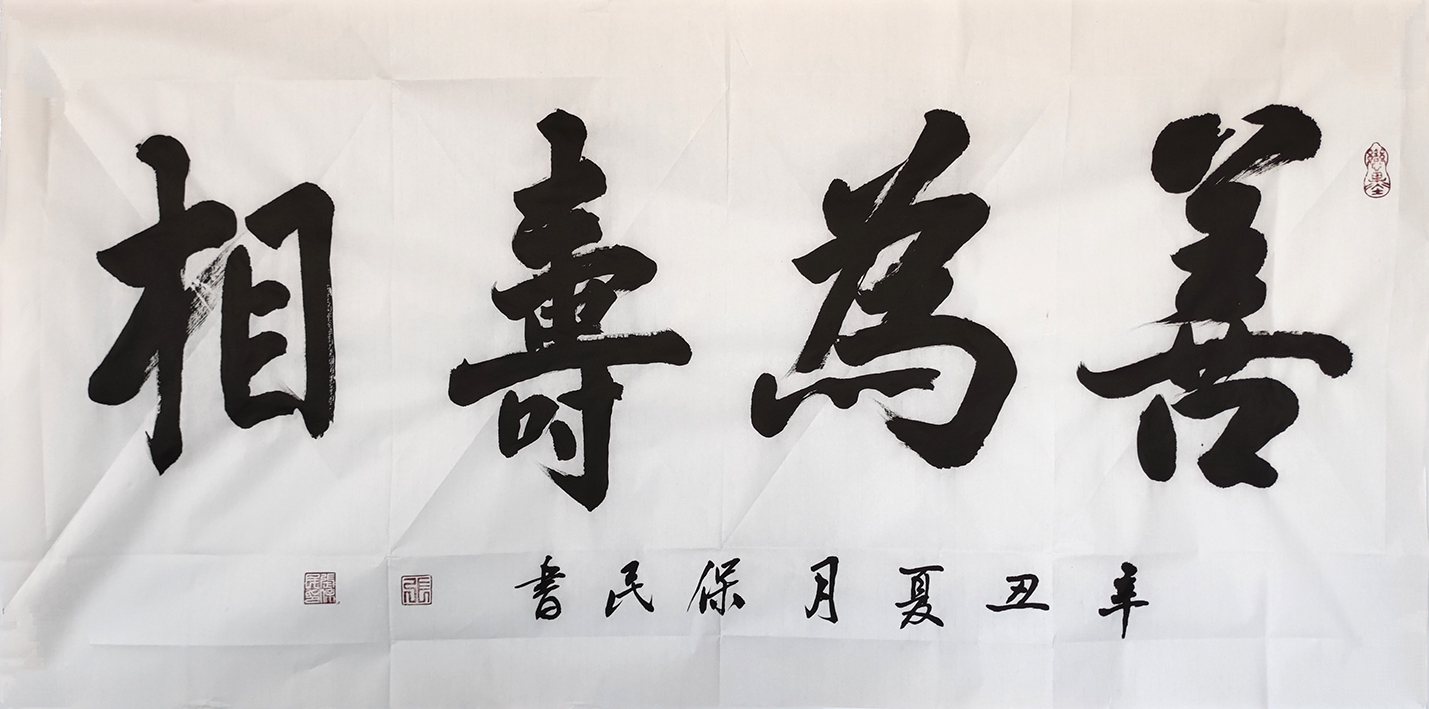 善為壽相
辛丑夏月保民書